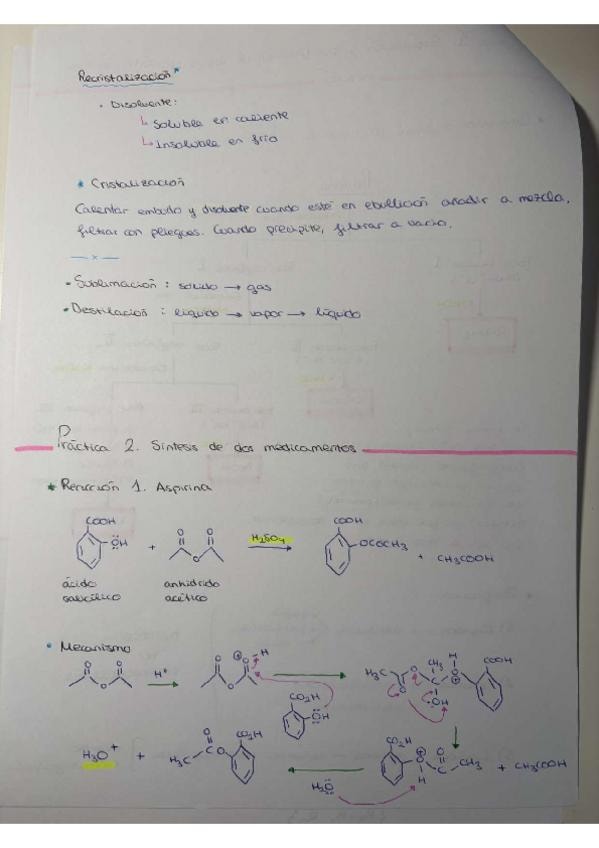 Recristalización*
· Disolvente:
↳ Soluble en caliente
↳ Insoluble en frío
* Cristalización
Calentar embudo y disolvente cuando esté en ebullición añadir a mezcla,
filtrar con pliegues. Cuando precipite, filtrar a vacío.
— x —
• Sublimación : sólido → gas
• Destilación : líquido → vapor → líquido
Práctica 2. Síntesis de dos medicamentos
* Reacción 1. Aspirina
COOH OH + O O O H2SO4 → COOH OCOCH3 + CH3COOH
ácido anhídrido
salicílico acético
• Mecanismo
O O O H+ → O O O H CO2H OH → H3C O O CH3 C OH H O COOH
H3O+ + H3C C O O CO2H ← H2O CO2H O H C O CH3 + CH3COOH